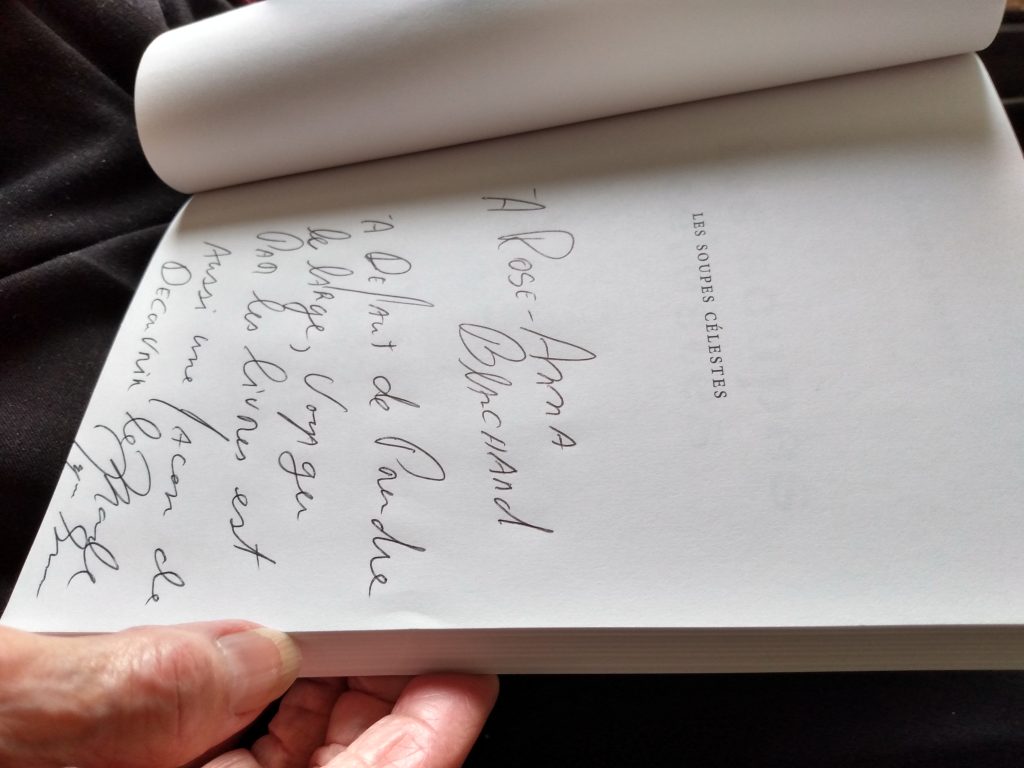 LES SOUPES CÉLESTES
À ROSE-ANNA
BLACHAND
À Défaut de Pendre
le large, voyager
PAR les livres est
Aussi une façon de
Découvrir le Monde